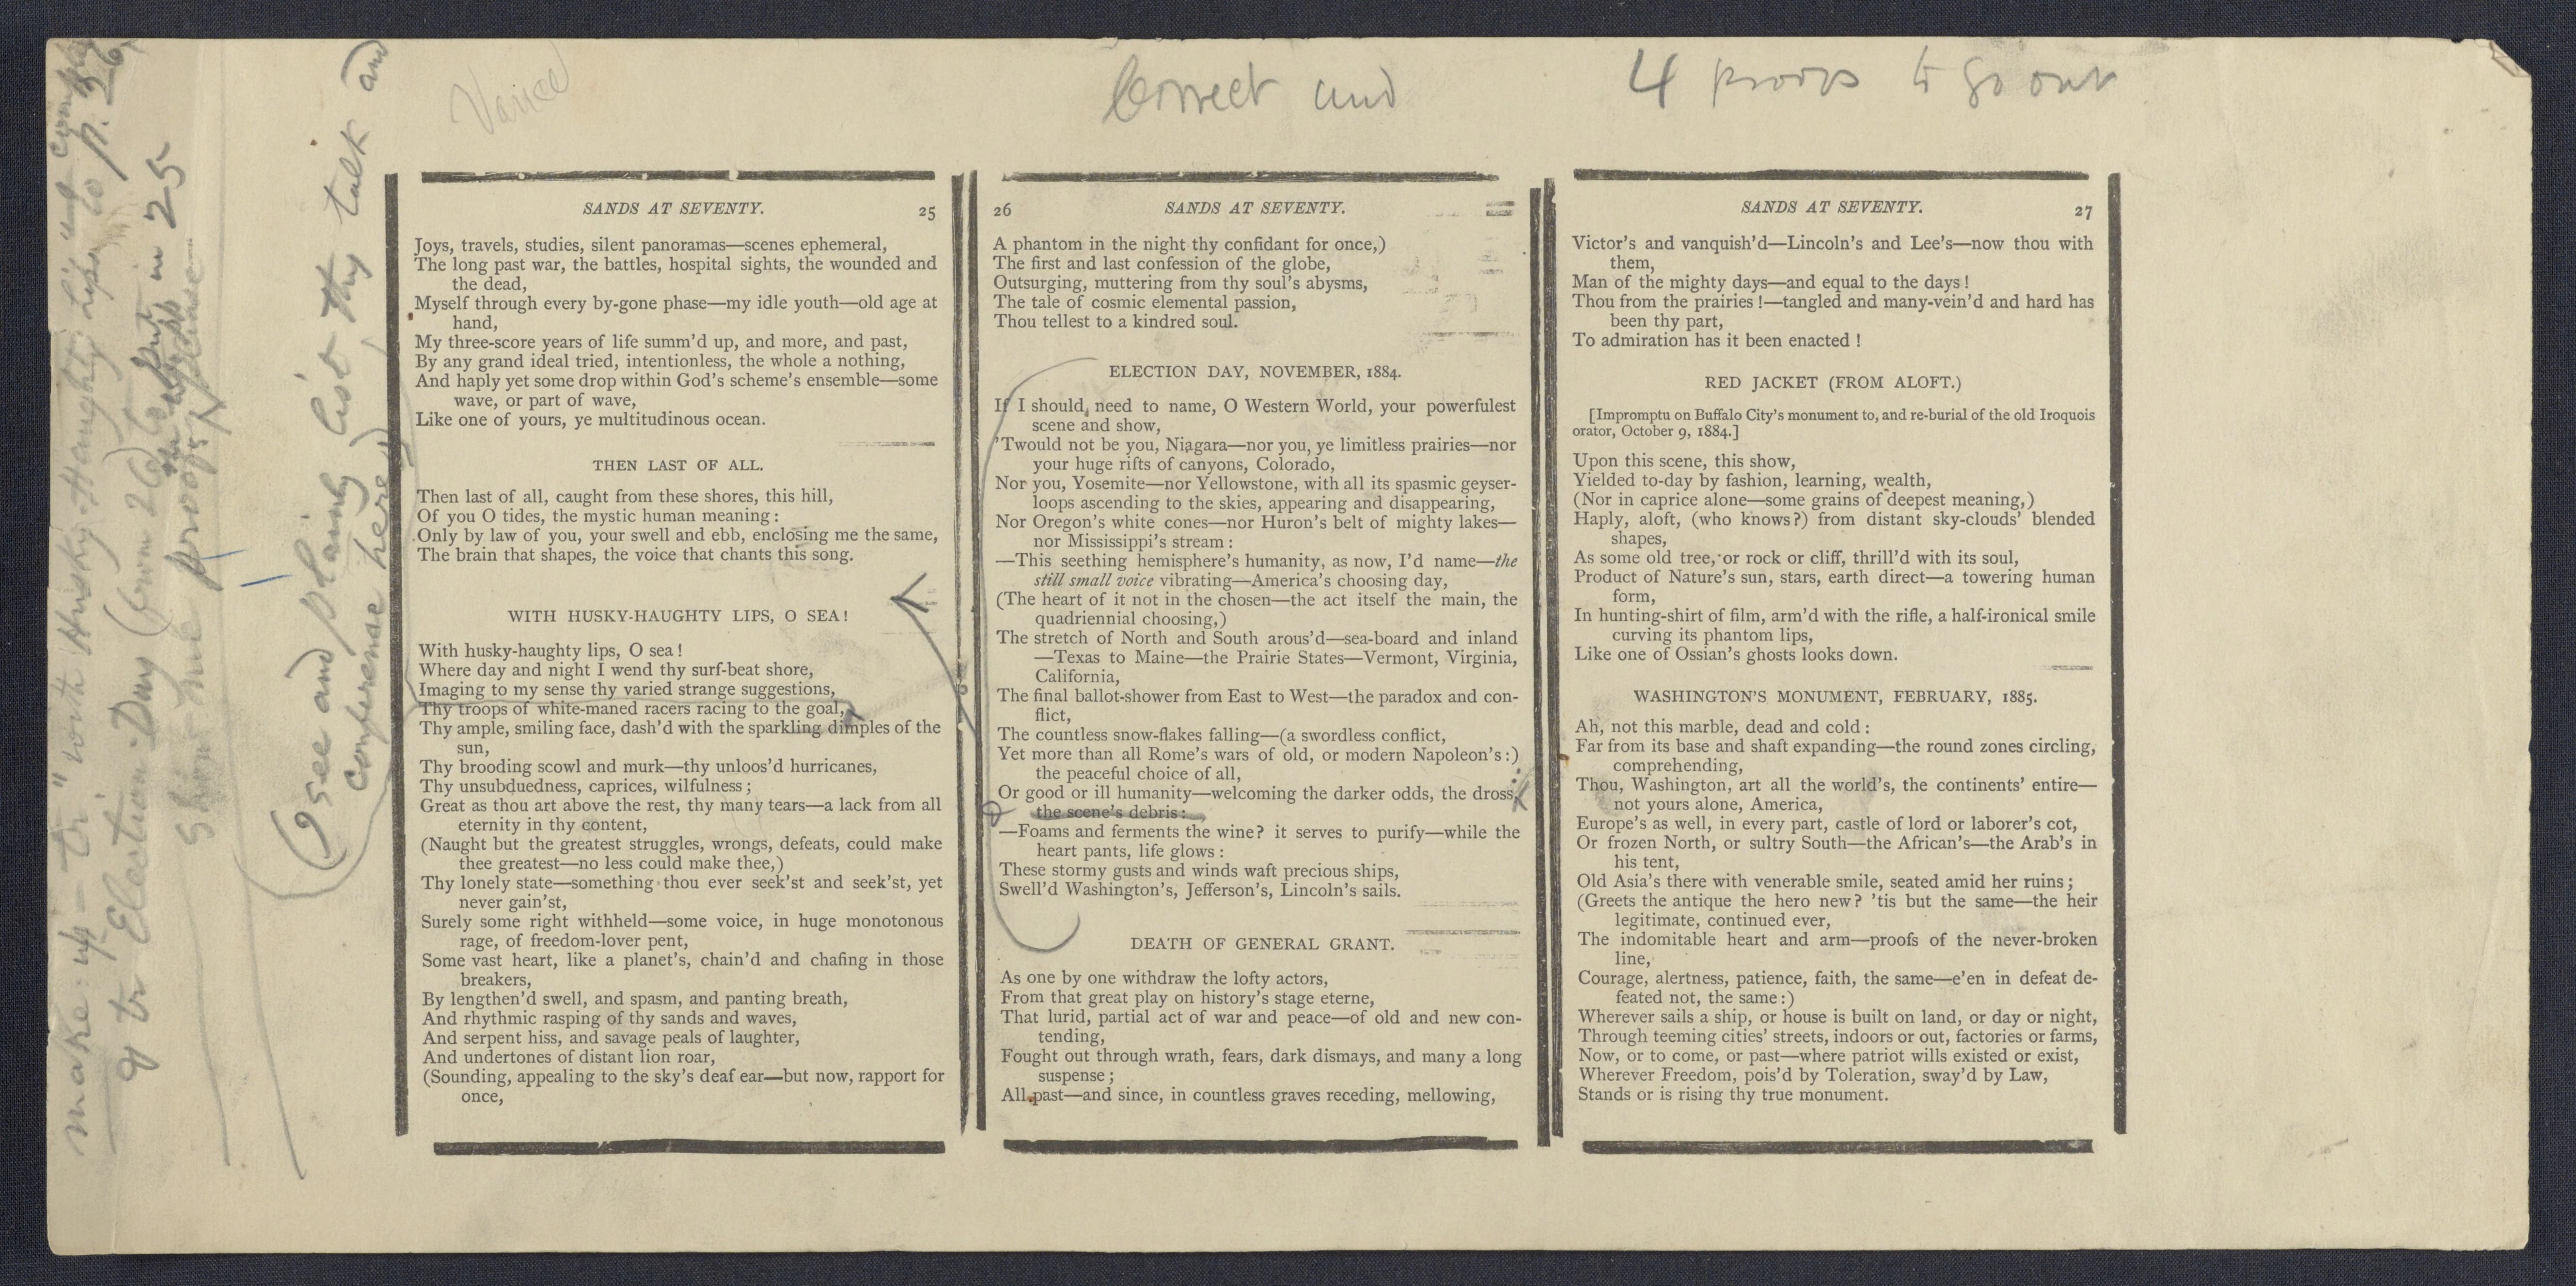 Correct and
4 proofs to go out
(I see and plainly list thy talk and
conference here)
to Election Day (from 26) put in 25
show me proofs please
SANDS AT SEVENTY. 25
Joys, travels, studies, silent panoramas—scenes ephemeral,
The long past war, the battles, hospital sights, the wounded and
the dead,
Myself through every by-gone phase—my idle youth—old age at
hand,
My three-score years of life summ'd up, and more, and past,
By any grand ideal tried, intentionless, the whole a nothing,
And haply yet some drop within God's scheme's ensemble—some
wave, or part of wave,
Like one of yours, ye multitudinous ocean.
THEN LAST OF ALL.
Then last of all, caught from these shores, this hill,
Of you O tides, the mystic human meaning:
Only by law of you, your swell and ebb, enclosing me the same,
The brain that shapes, the voice that chants this song.
WITH HUSKY-HAUGHTY LIPS, O SEA!
With husky-haughty lips, O sea!
Where day and night I wend thy surf-beat shore,
Imaging to my sense thy varied strange suggestions,
Thy troops of white-maned racers racing to the goal,
Thy ample, smiling face, dash'd with the sparkling dimples of the
sun,
Thy brooding scowl and murk—thy unloos'd hurricanes,
Thy unsubduedness, caprices, wilfulness;
Great as thou art above the rest, thy many tears—a lack from all
eternity in thy content,
(Naught but the greatest struggles, wrongs, defeats, could make
thee greatest—no less could make thee,)
Thy lonely state—something thou ever seek'st and seek'st, yet
never gain'st,
Surely some right withheld—some voice, in huge monotonous
rage, of freedom-lover pent,
Some vast heart, like a planet's, chain'd and chafing in those
breakers,
By lengthen'd swell, and spasm, and panting breath,
And rhythmic rasping of thy sands and waves,
And serpent hiss, and savage peals of laughter,
And undertones of distant lion roar,
(Sounding, appealing to the sky's deaf ear—but now, rapport for
once,
26 SANDS AT SEVENTY.
A phantom in the night thy confidant for once,)
The first and last confession of the globe,
Outsurging, muttering from thy soul's abysms,
The tale of cosmic elemental passion,
Thou tellest to a kindred soul.
ELECTION DAY, NOVEMBER, 1884.
If I should need to name, O Western World, your powerfulest
scene and show,
'Twould not be you, Niagara—nor you, ye limitless prairies—nor
your huge rifts of canyons, Colorado,
Nor you, Yosemite—nor Yellowstone, with all its spasmic geyser-
loops ascending to the skies, appearing and disappearing,
Nor Oregon's white cones—nor Huron's belt of mighty lakes—
nor Mississippi's stream:
—This seething hemisphere's humanity, as now, I'd name—the
still small voice vibrating—America's choosing day,
(The heart of it not in the chosen—the act itself the main, the
quadriennial choosing,)
The stretch of North and South arous'd—sea-board and inland
—Texas to Maine—the Prairie States—Vermont, Virginia,
California,
The final ballot-shower from East to West—the paradox and con-
flict,
The countless snow-flakes falling—(a swordless conflict,
Yet more than all Rome's wars of old, or modern Napoleon's:)
the peaceful choice of all,
Or good or ill humanity—welcoming the darker odds, the dross,
the scene's debris:
—Foams and ferments the wine? it serves to purify—while the
heart pants, life glows:
These stormy gusts and winds waft precious ships,
Swell'd Washington's, Jefferson's, Lincoln's sails.
DEATH OF GENERAL GRANT.
As one by one withdraw the lofty actors,
From that great play on history's stage eterne,
That lurid, partial act of war and peace—of old and new con-
tending,
Fought out through wrath, fears, dark dismays, and many a long
suspense;
All past—and since, in countless graves receding, mellowing,
SANDS AT SEVENTY. 27
Victor's and vanquish'd—Lincoln's and Lee's—now thou with
them,
Man of the mighty days—and equal to the days!
Thou from the prairies!—tangled and many-vein'd and hard has
been thy part,
To admiration has it been enacted!
RED JACKET (FROM ALOFT.)
[Impromptu on Buffalo City's monument to, and re-burial of the old Iroquois
orator, October 9, 1884.]
Upon this scene, this show,
Yielded to-day by fashion, learning, wealth,
(Nor in caprice alone—some grains of deepest meaning,)
Haply, aloft, (who knows?) from distant sky-clouds' blended
shapes,
As some old tree, or rock or cliff, thrill'd with its soul,
Product of Nature's sun, stars, earth direct—a towering human
form,
In hunting-shirt of film, arm'd with the rifle, a half-ironical smile
curving its phantom lips,
Like one of Ossian's ghosts looks down.
WASHINGTON'S MONUMENT, FEBRUARY, 1885.
Ah, not this marble, dead and cold:
Far from its base and shaft expanding—the round zones circling,
comprehending,
Thou, Washington, art all the world's, the continents' entire—
not yours alone, America,
Europe's as well, in every part, castle of lord or laborer's cot,
Or frozen North, or sultry South—the African's—the Arab's in
his tent,
Old Asia's there with venerable smile, seated amid her ruins;
(Greets the antique the hero new? 'tis but the same—the heir
legitimate, continued ever,
The indomitable heart and arm—proofs of the never-broken
line,
Courage, alertness, patience, faith, the same—e'en in defeat de-
feated not, the same:)
Wherever sails a ship, or house is built on land, or day or night,
Through teeming cities' streets, indoors or out, factories or farms,
Now, or to come, or past—where patriot wills existed or exist,
Wherever Freedom, pois'd by Toleration, sway'd by Law,
Stands or is rising thy true monument.